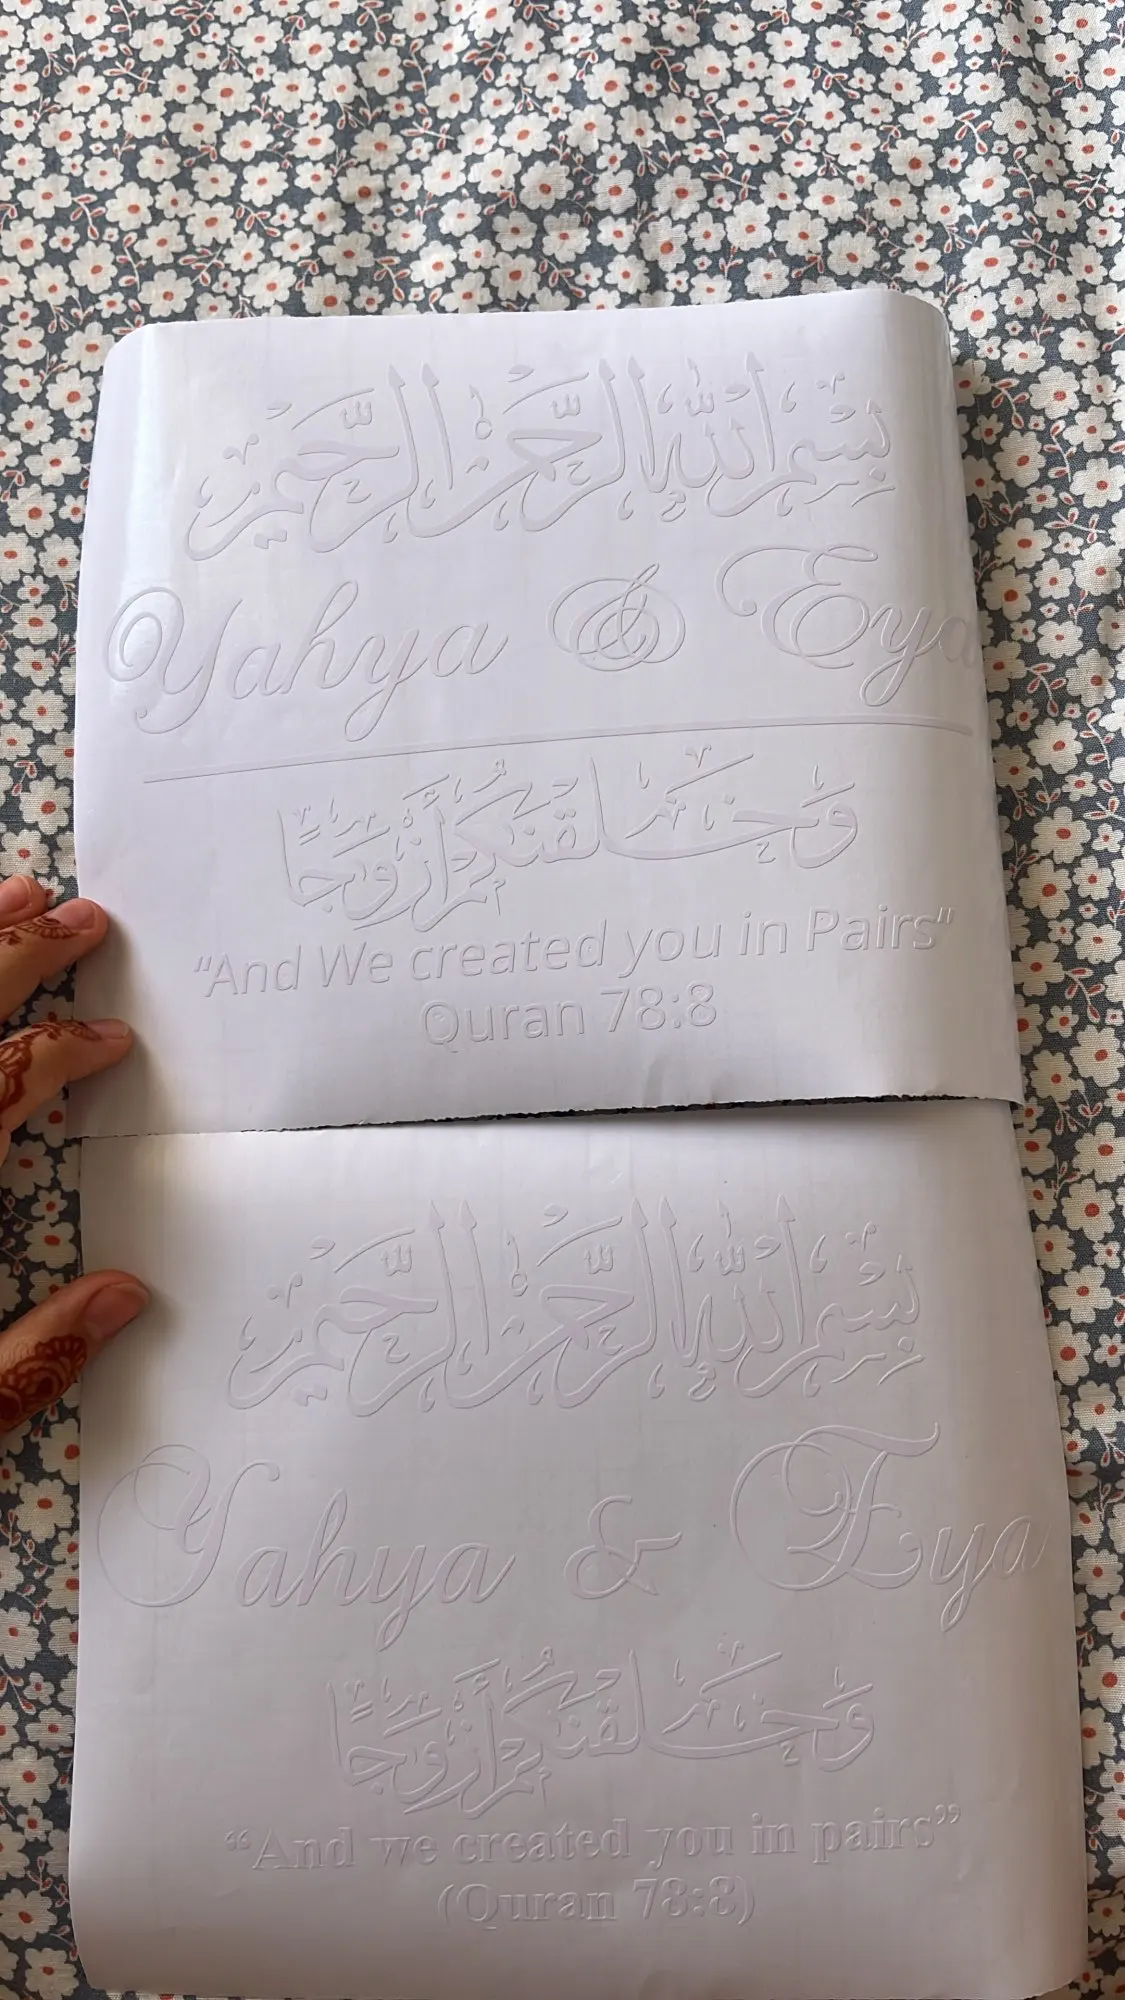 بِسْمِ اللَّهِ الرَّحْمَٰنِ الرَّحِيمِ
Yahya & Eya
وَخَلَقْنَٰكُمْ أَزْوَٰجًا
“And We created you in Pairs”
Quran 78:8
بِسْمِ اللَّهِ الرَّحْمَٰنِ الرَّحِيمِ
Yahya & Eya
وَخَلَقْنَٰكُمْ أَزْوَٰجًا
“And we created you in pairs”
(Quran 78:8)